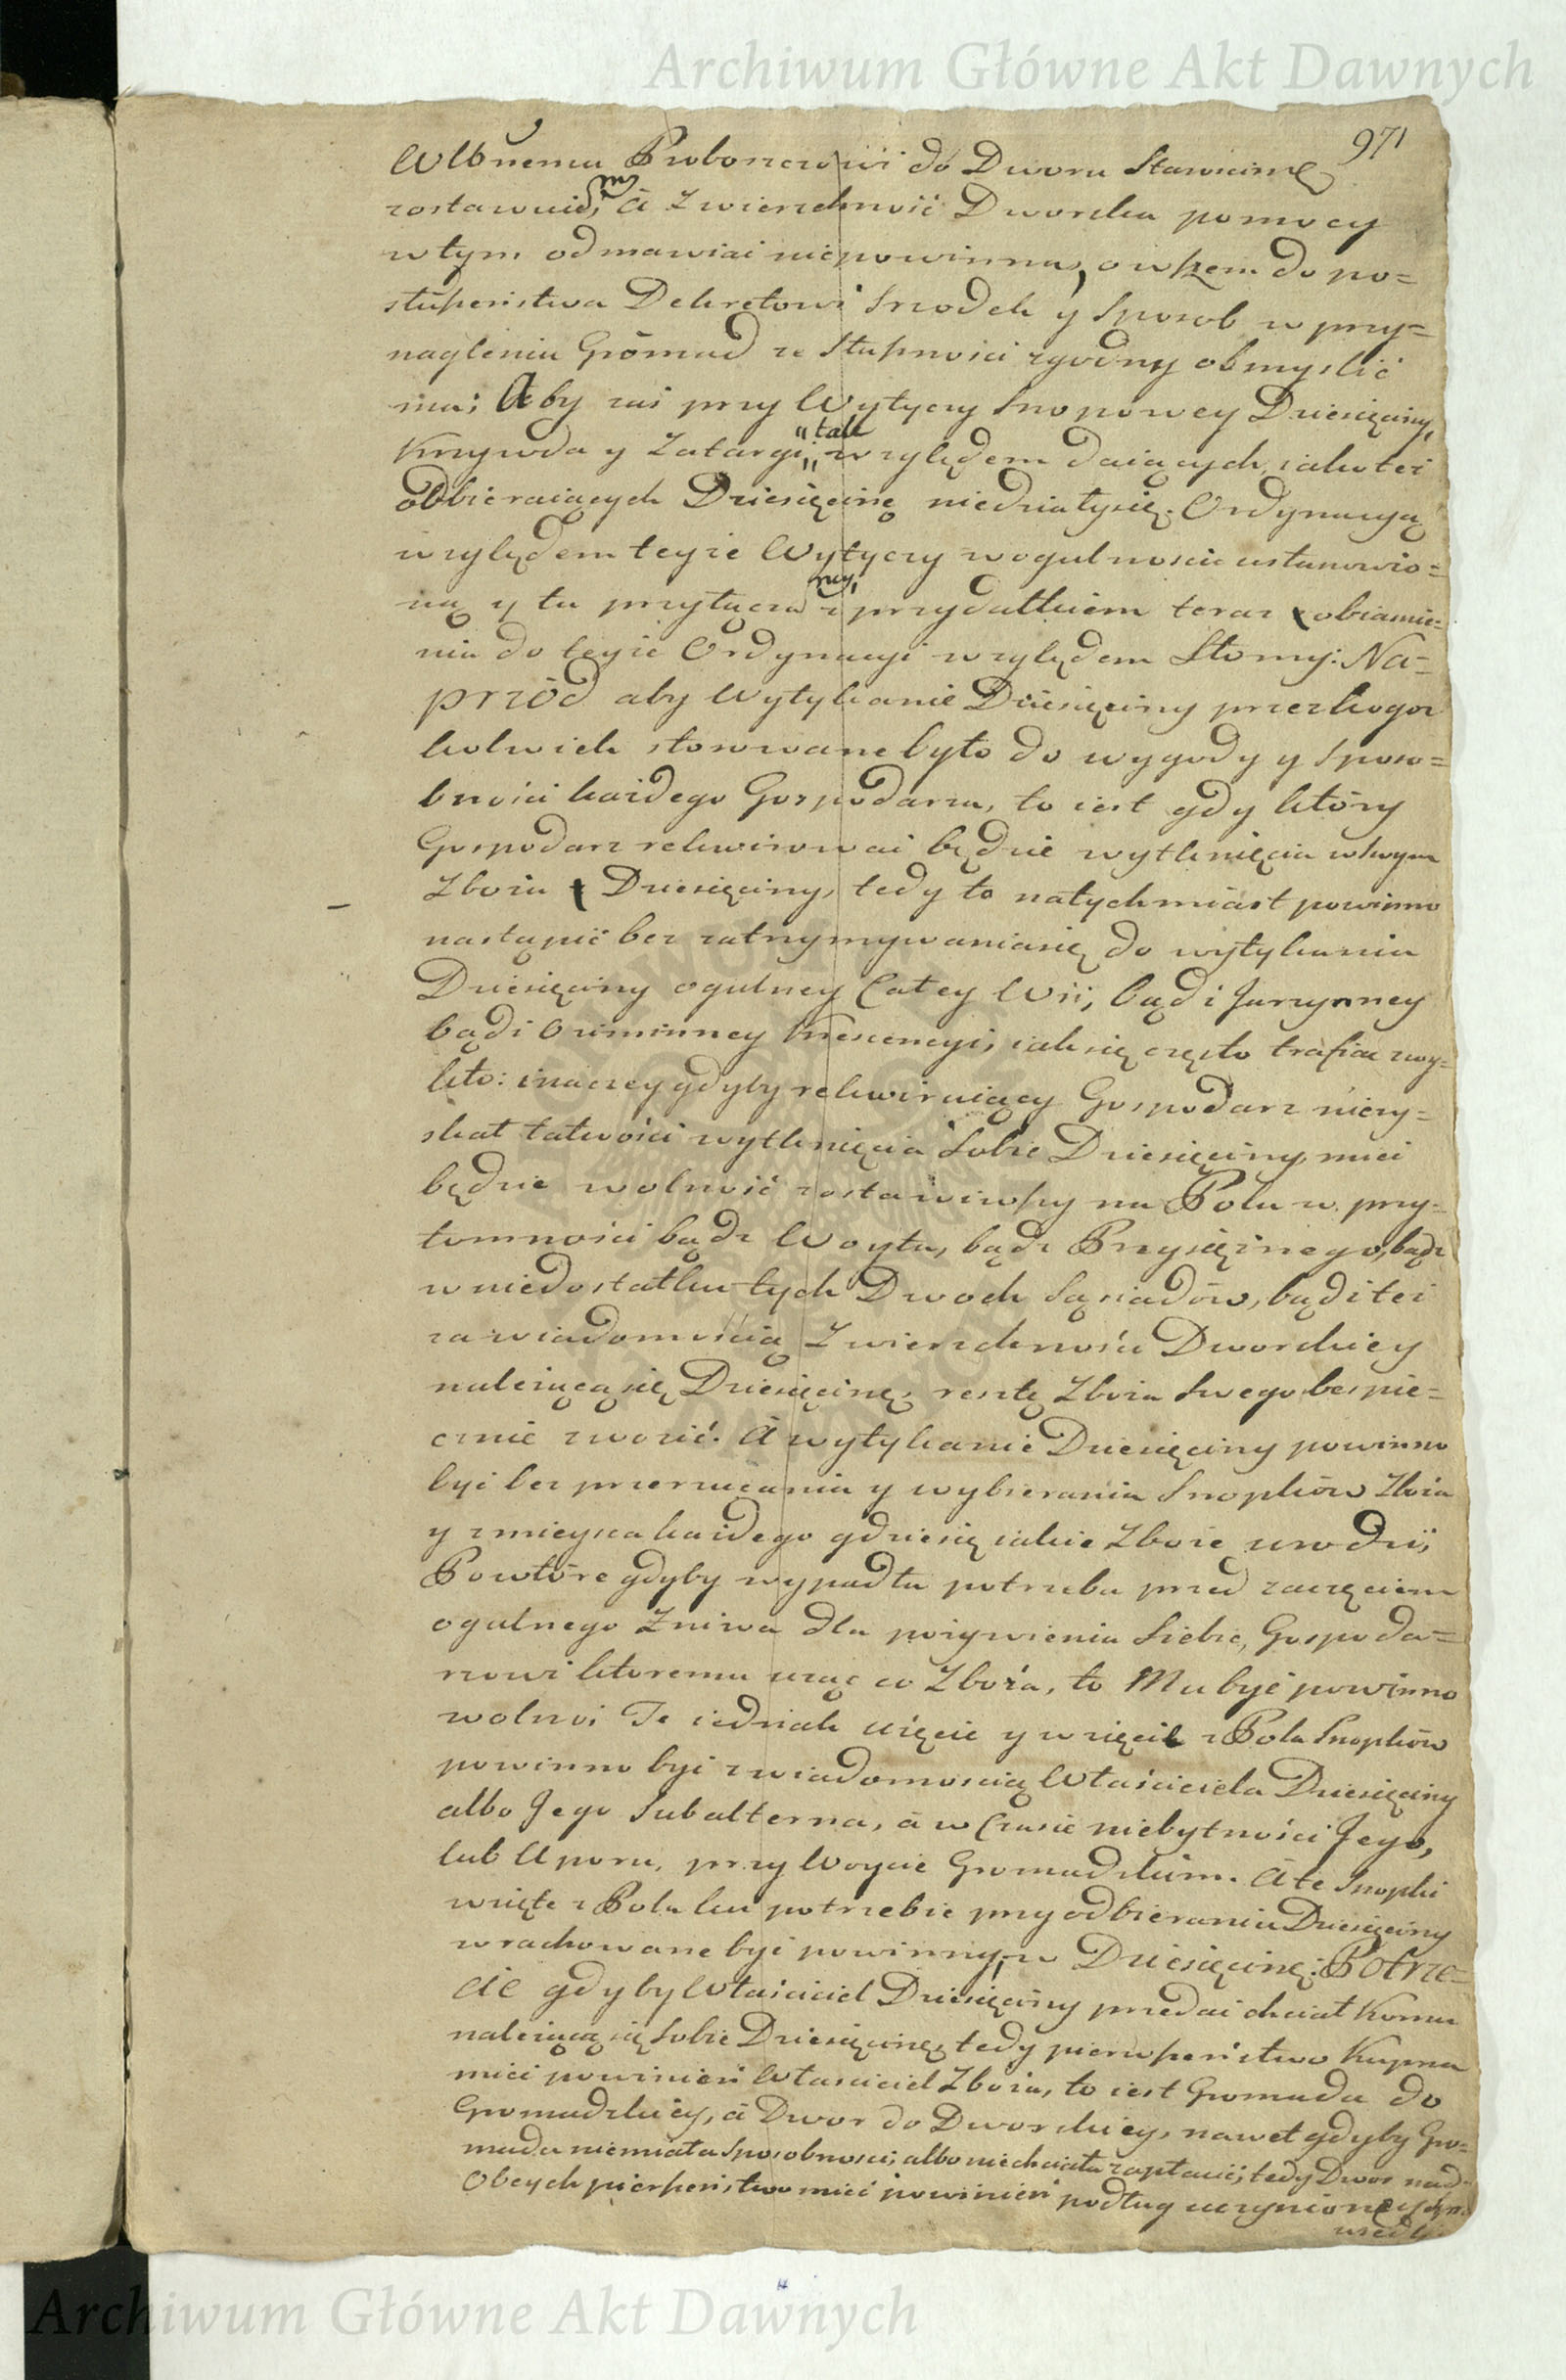 Archiwum Główne Akt Dawnych
971
Wbnemu Proboszczowi do Dworu Stawienie
zostawuie, my á Zwierzchność Dworska pomocy
w tym odmawiać niepowinna, owszem do po=
słuszeństwa Dekretowi Srzodek y Sposob w przy=
nagleniu Grómad ze Słusznosci zgodny obmyslić
ma; Aby zaś przy Wytyczy Snopowey Dziesięciny,
Krzywda y Zatargi, tak względem daiących iako też
odbieraiących Dziesięcinę niedziałysię. Ordynacyą
względem teyże Wytyczy wogulnoscie ustanowio=
ną y tu przyłącza my, z przydatkiem teraz obiaśnie=
nia do teyże Ordynacyi względem Słomy: Na=
przód aby Wytykanie Dziesięciny przezkogoż
kolwiek stosowane było do wygody y Sposo=
bności każdego Gospodarza, to iest gdy który
Gospodarz rekwirować będzie wytknięcia wswym
Zbożu Dziesięciny, tedy to natychmiast powinno
nastąpić bez zatrzymywaniasię do wytykania
Dziesięciny ogulney Całey Wsi, bądź Jarzynney
bądź Oziminney Krescencyi, iak się często trafiać zwy=
kło: inaczey gdyby rekwiruiący Gospodarz niezy=
skał łatwości wytknięcia Sobie Dziesięciny, mieć
będzie wolność zostawiwszy na Polu w przy=
tomności bądź Woyta, bądź Przysiężnego, bądź
w niedostatku tych Dwoch Sąsiadów, bądź też
zawiadomością Zwierzchności Dworskiey
należącąsię Dziesięcinę, resztę Zboża Swego bespie=
cznie zwozić. A wytykanie Dziesięciny powinno
być bez przerzucania y wybierania Snopków Zboża
y zmieysca każdego gdziesię iakie Zboże urodzi;
Powtóre gdyby wypadła potrzeba przed zaczęciem
ogulnego Żniwa dla pożywienia Siebie, Gospoda=
rzowi któremu urżąć co Zboża, to Mu być powinno
wolno; Te iednak użęcie y wzięcie z Pola Snopków
powinno być zwiadomoscią Właściciela Dziesięciny
albo Jego Subalterna, á w Czasie niebytności Jego,
lub Uporu, przy Woycie Gromadzkim. A te Snopki
wzięte z Pola ku potrzebie przy odbieraniu Dziesięciny
wrachowane być powinny w Dziesięcinę: Potrze=
cie gdyby Właściciel Dziesięciny przedać chciał Komu
należącąsię Sobie Dziesięcinę, tedy pierwszeństwo Kupna
mieć powinień Właściciel Zboża, to iest Gromada do
Gromadzkiey, á Dwor do Dworskiey, nawet gdyby Gro=
mada niemiała Sposobności, albo niechciała zapłacić, tedy Dwor nad
Obcych pierszeństwo mieć powinień podług uczynioney
Archiwum Główne Akt Dawnych